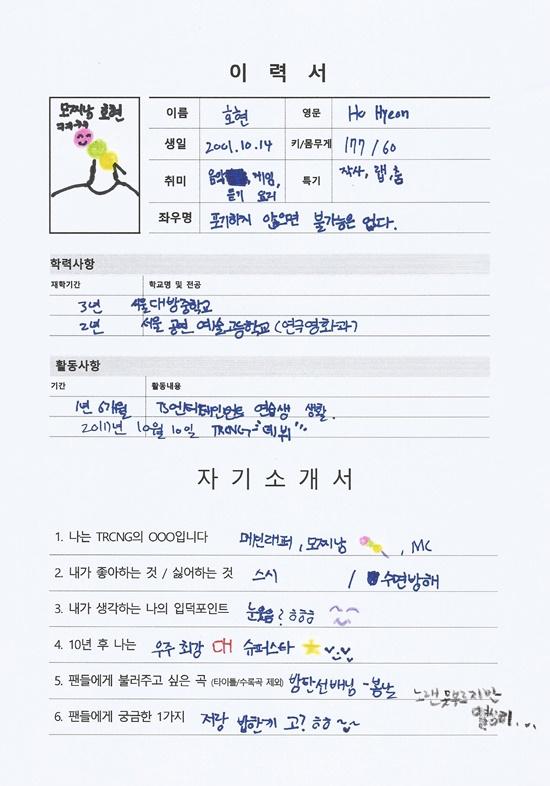 이 력 서
모찌남 호현
ㅋㅋㅋ
이름 호현 영문 Ho Hyeon
생일 2001.10.14 키/몸무게 177/60
취미 음악 듣기, 게임, 요리 특기 작사, 랩, 춤
좌우명 포기하지 않으면 불가능은 없다.
학력사항
재학기간 학교명 및 전공
3년 서울대방중학교
2년 서울 공연 예술고등학교 (연극영화과)
활동사항
기간 활동내용
1년 6개월 TS엔터테인먼트 연습생 생활.
2017년 10월 10일 TRCNG "데뷔"
자 기 소 개 서
1. 나는 TRCNG의 OOO입니다 메인래퍼, 모찌남 , MC
2. 내가 좋아하는 것 / 싫어하는 것 스시 / 수면방해
3. 내가 생각하는 나의 입덕포인트 눈웃음? ㅎㅎㅎ
4. 10년 후 나는 우주 최강 대 슈퍼스타
5. 팬들에게 불러주고 싶은 곡 (타이틀/수록곡 제외) 방탄선배님 - 봄날 노랜 못부르지만 열심히...
6. 팬들에게 궁금한 1가지 저랑 밥한끼 고? ㅎㅎ ~~